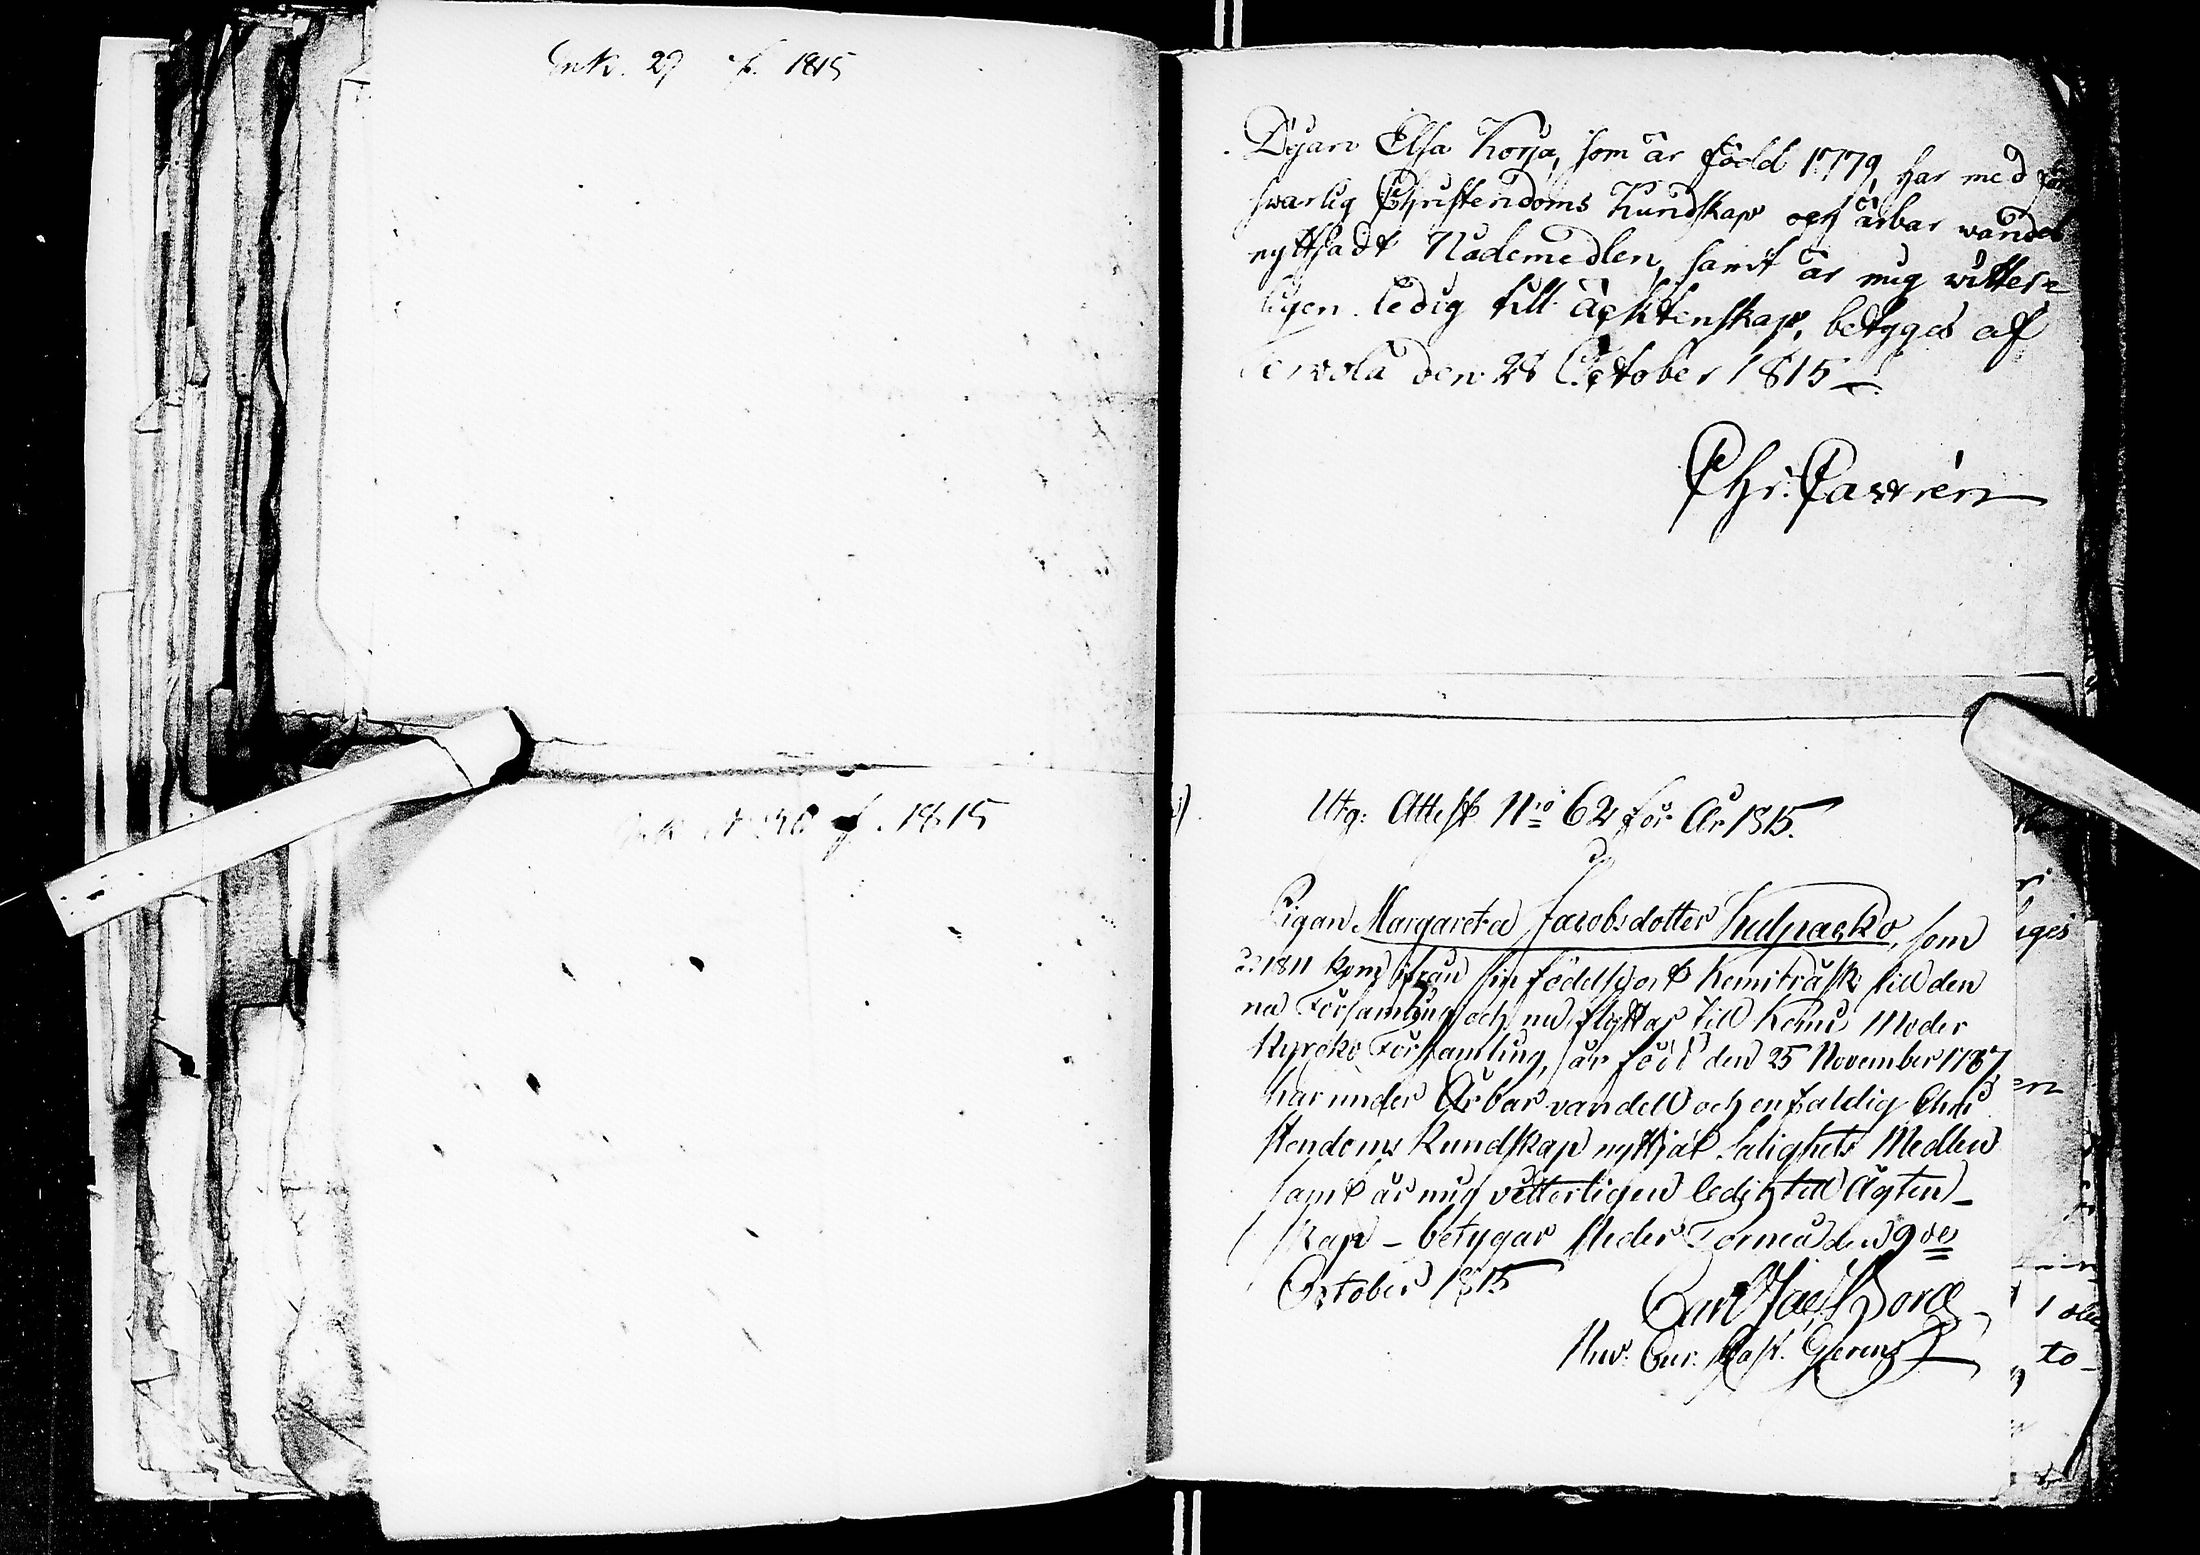 Ink. 29 f. 1815
Pigan Elsa Korja, som är född 1779, har med för
svarlig Christendoms Kundskap och ärbar vandel
nyttjadt Nådemedlen, samt är mig vitter-
ligen ledig till äcktenskap, betyges af
Tervola den 28 October 1815
Chr: Cawén
Ink. N 30 f. 1815
Utg: Attest N:ro 62 för År 1815.
Pigan Margareta Jacobsdotter Kulpacko, som
1811 kom ifrån sin födelsjort Kemiträsk till den
na Församling och nu flyttar till Kemi Moder
Kyrcko Församling, är född den 25 November 1787,
har under Ärbar vandell och enfaldig Chri
stendoms Kundskap nyttjat Salighets Medlen
samt är mig vitterligen ledig till Ägten-
skap - betygar Neder Torneå den 9de
October 1815
Carl
Past.